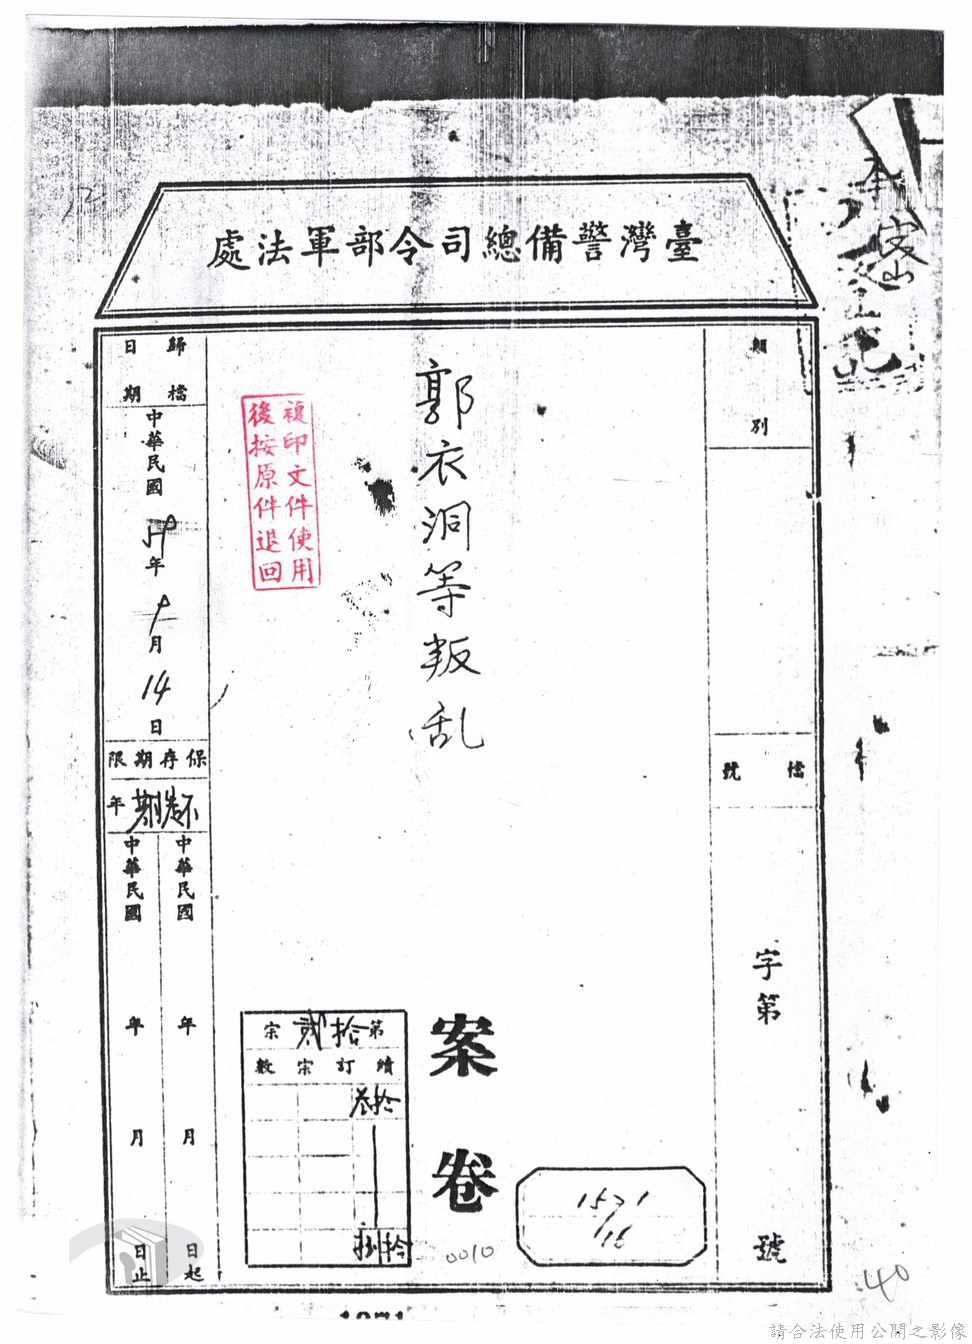 臺灣警備總司令部軍法處
類別
檔號
字第
號
郭衣洞等叛乱
案卷
複印文件使用
後按原件退回
歸檔
日期
中華民國
年
月
14
日
保存期限
年
中華民國
年
月
日起
中華民國
年
月
日止
第拾貳宗
續訂宗數
拾叁
拾捌
1571
/16
0010
40
1071
請合法使用公開之影像